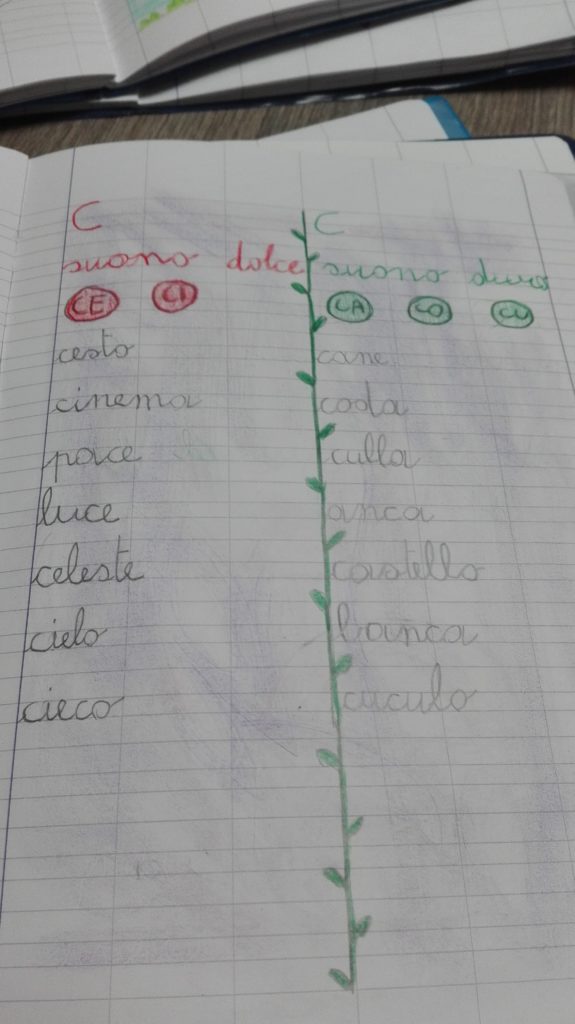 C
suono dolce
CE CI
cesto
cinema
pace
luce
celeste
cielo
cieco
C
suono duro
CA CO CU
cane
coda
culla
anca
castello
banca
cuculo